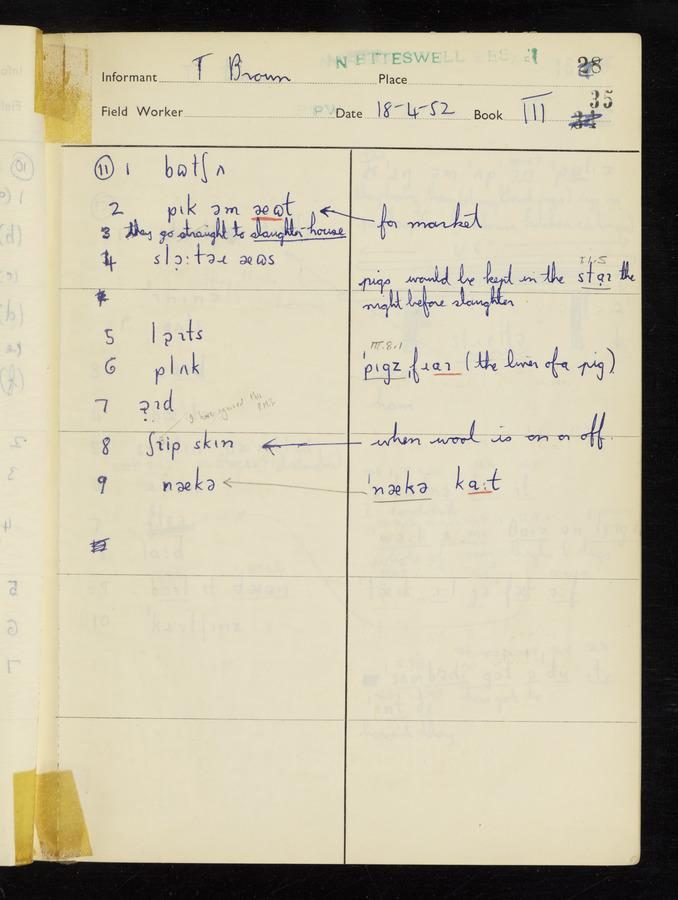 NETTESWELL ES. 1
28
Informant T Brown Place
35
Field Worker PV Date 18-4-52 Book III 34
⑪ 1 bɷtʃʌ
2 pɪk əm æɷt ← for market
3 they go straight to slaughter-house
4 slɔ:təɹ æɷs
pigs would be kept in the staɪ the
night before slaughter
5 lɔɪts
III.8.1
6 plʌk
'pɪgz ˌfɹaɪ (the liver of a pig)
7 ə̣ɪd
8 ʃɪɪp skɪn ← when wool is on or off.
9 nækə ← 'nækə ka:t